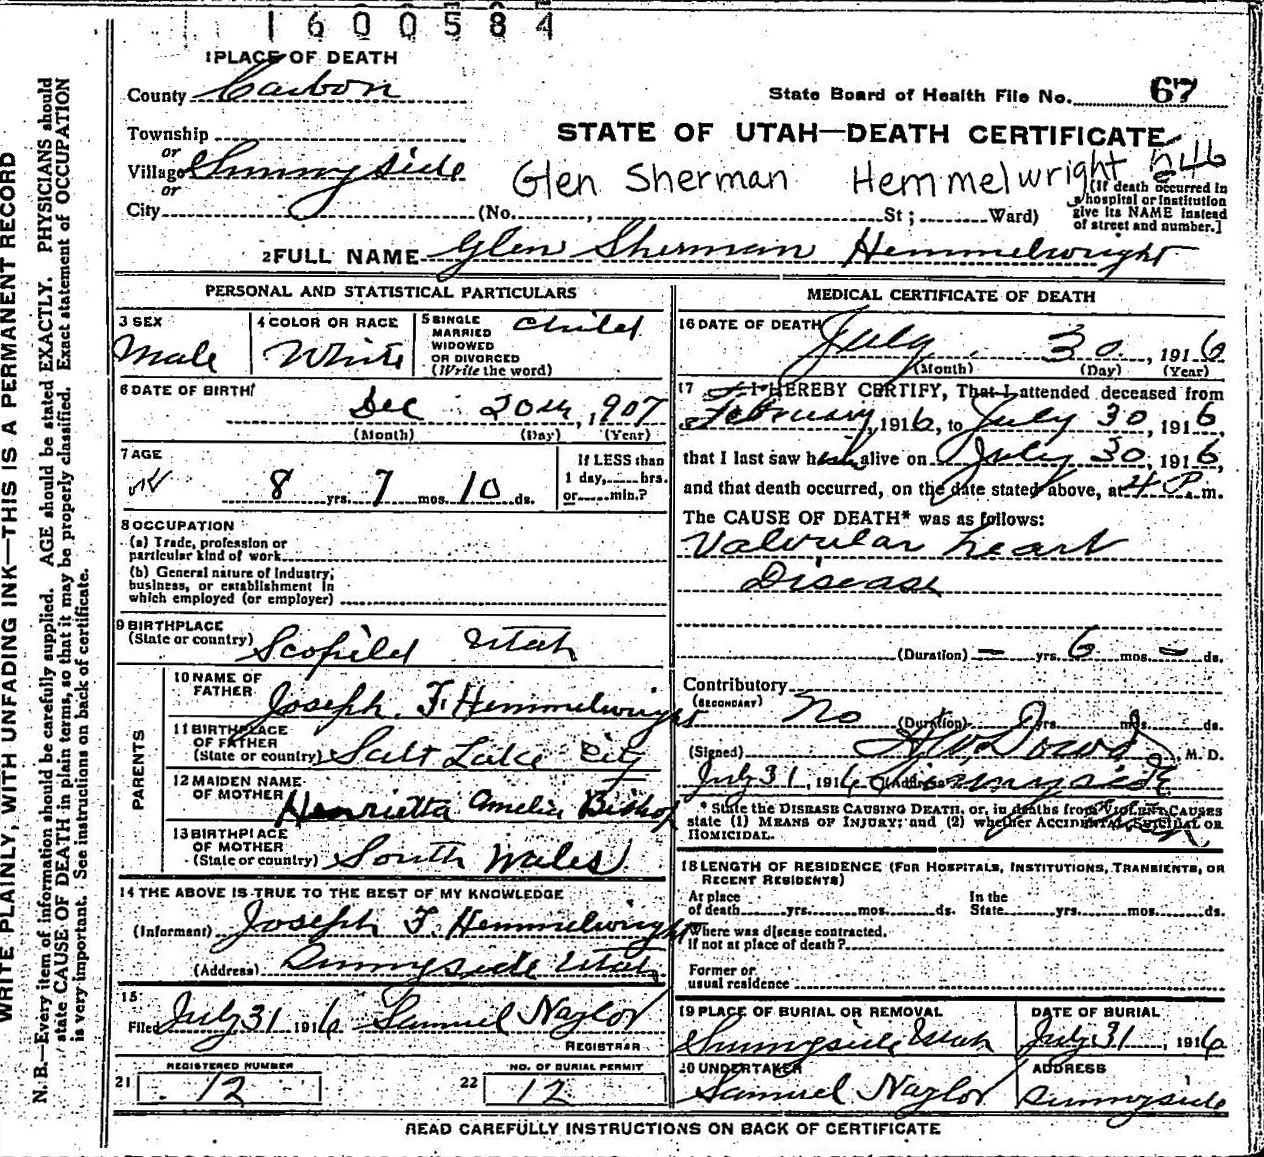 1600584
1 PLACE OF DEATH
County Carbon
State Board of Health File No. 67
Township
or
STATE OF UTAH—DEATH CERTIFICATE
Village Sunnyside
or
Glen Sherman Hemmelwright
City (No. , St ; Ward)
[If death occurred in
a hospital or institution
give its NAME instead
of street and number.]
2 FULL NAME Glen Sherman Hemmelwright
PERSONAL AND STATISTICAL PARTICULARS
3 SEX
Male
4 COLOR OR RACE
White
5 SINGLE
MARRIED
WIDOWED
OR DIVORCED
(Write the word)
Child
6 DATE OF BIRTH
Dec 20th, 1907
(Month) (Day) (Year)
7 AGE
8 yrs. 7 mos. 10 ds.
If LESS than
1 day, hrs.
or min.?
8 OCCUPATION
(a) Trade, profession or
particular kind of work
(b) General nature of Industry,
business, or establishment in
which employed (or employer)
9 BIRTHPLACE
(State or country) Scofield Utah
PARENTS
10 NAME OF
FATHER Joseph F. Hemmelwright
11 BIRTHPLACE
OF FATHER
(State or country) Salt Lake City
12 MAIDEN NAME
OF MOTHER Henrietta Amelia Bishop
13 BIRTHPLACE
OF MOTHER
(State or country) South Wales
14 THE ABOVE IS TRUE TO THE BEST OF MY KNOWLEDGE
(Informant) Joseph F. Hemmelwright
(Address) Sunnyside Utah
15
Filed July 31 1916 Samuel Naylor
REGISTRAR
REGISTERED NUMBER
21 12
NO. OF BURIAL PERMIT
22 12
MEDICAL CERTIFICATE OF DEATH
16 DATE OF DEATH
July 30, 1916
(Month) (Day) (Year)
17 I HEREBY CERTIFY, That I attended deceased from
February, 1916, to July 30, 1916,
that I last saw him alive on July 30, 1916,
and that death occurred, on the date stated above, at 4 P. m.
The CAUSE OF DEATH* was as follows:
Valvular heart
Disease
(Duration) — yrs. 6 mos. — ds.
Contributory
(SECONDARY) No (Duration) yrs. mos. ds.
(Signed) Dowd, M. D.
July 31, 1916 (Address) Sunnyside
* State the DISEASE CAUSING DEATH, or, in deaths from VIOLENT CAUSES
state (1) MEANS OF INJURY; and (2) whether ACCIDENTAL, SUICIDAL OR
HOMICIDAL.
18 LENGTH OF RESIDENCE (FOR HOSPITALS, INSTITUTIONS, TRANSIENTS, OR
RECENT RESIDENTS)
At place
of death yrs. mos. ds.
In the
State yrs. mos. ds.
Where was disease contracted,
if not at place of death?
Former or
usual residence
19 PLACE OF BURIAL OR REMOVAL
Sunnyside Utah
DATE OF BURIAL
July 31, 1916
20 UNDERTAKER
Samuel Naylor
ADDRESS
Sunnyside
READ CAREFULLY INSTRUCTIONS ON BACK OF CERTIFICATE
WRITE PLAINLY, WITH UNFADING INK—THIS IS A PERMANENT RECORD
N. B.—Every item of information should be carefully supplied. AGE should be stated EXACTLY. PHYSICIANS should
state CAUSE OF DEATH in plain terms, so that it may be properly classified. Exact statement of OCCUPATION
is very important. See instructions on back of certificate.